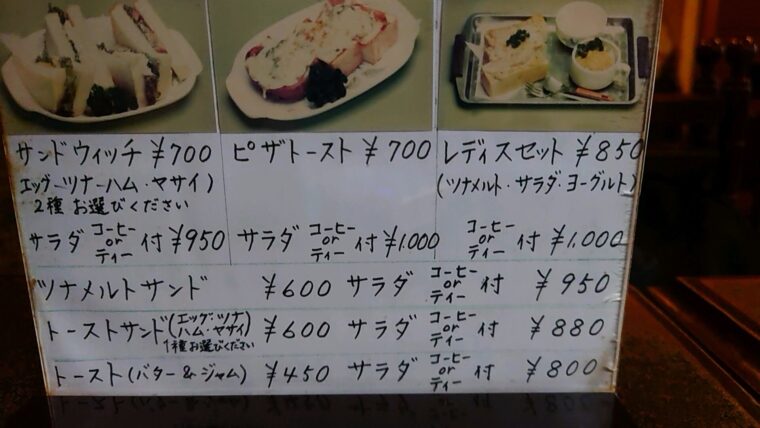 サンドウィッチ ¥700
エッグーツナーハム・ヤサイ)
2種 お選びください
サラダ コーヒー or ティー 付 ¥950
ピザトースト ¥700
サラダ コーヒー or ティー 付 ¥1,000
レディスセット ¥850
(ツナメルト・サラダ・ヨーグルト)
コーヒー or ティー 付 ¥1,000
ツナメルトサンド ¥600 サラダ コーヒー or ティー 付 ¥950
トーストサンド(エッグ・ツナ ハム・ヤサイ) ¥600 サラダ コーヒー or ティー 付 ¥880
1種お選びください
トースト(バター&ジャム) ¥450 サラダ コーヒー or ティー 付 ¥800